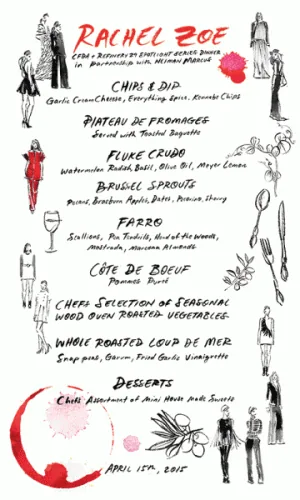 RACHEL ZOE
CFDA + REFINERY29 SPOTLIGHT SERIES DINNER
in partnership with NEIMAN MARCUS
CHIPS & DIP
Garlic Cream Cheese, Everything Spice, Kennebec Chips
PLATEAU DE FROMAGES
Served with Toasted Baguette
FLUKE CRUDO
Watermelon Radish, Basil, Olive Oil, Meyer Lemon
BRUSSEL SPROUTS
Pecans, Braeburn Apples, Dates, Pecorino, Sherry
FARRO
Scallions, Pea Tendrils, Hen of the Woods,
Mostrada, Marcona Almonds
CÔTE DE BOEUF
Pommes Purée
CHEFS SELECTION OF SEASONAL
WOOD OVEN ROASTED VEGETABLES
WHOLE ROASTED LOUP DE MER
Snap peas, Garum, Fried Garlic Vinaigrette
DESSERTS
Chefs Assortment of Mini House Made Sweets
APRIL 15TH, 2015